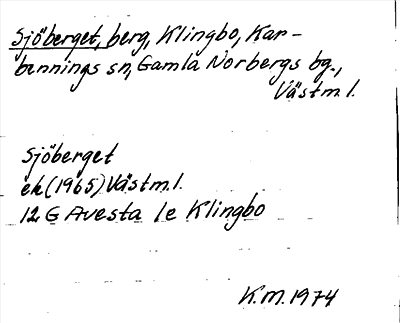 Sjöberget, berg, Klingbo, Kar-
bennings sn, Gamla Norbergs bg.,
Västm.l.
Sjöberget
ek(1965) Västm.l.
12 G Avesta 1e Klingbo
K.M.1974